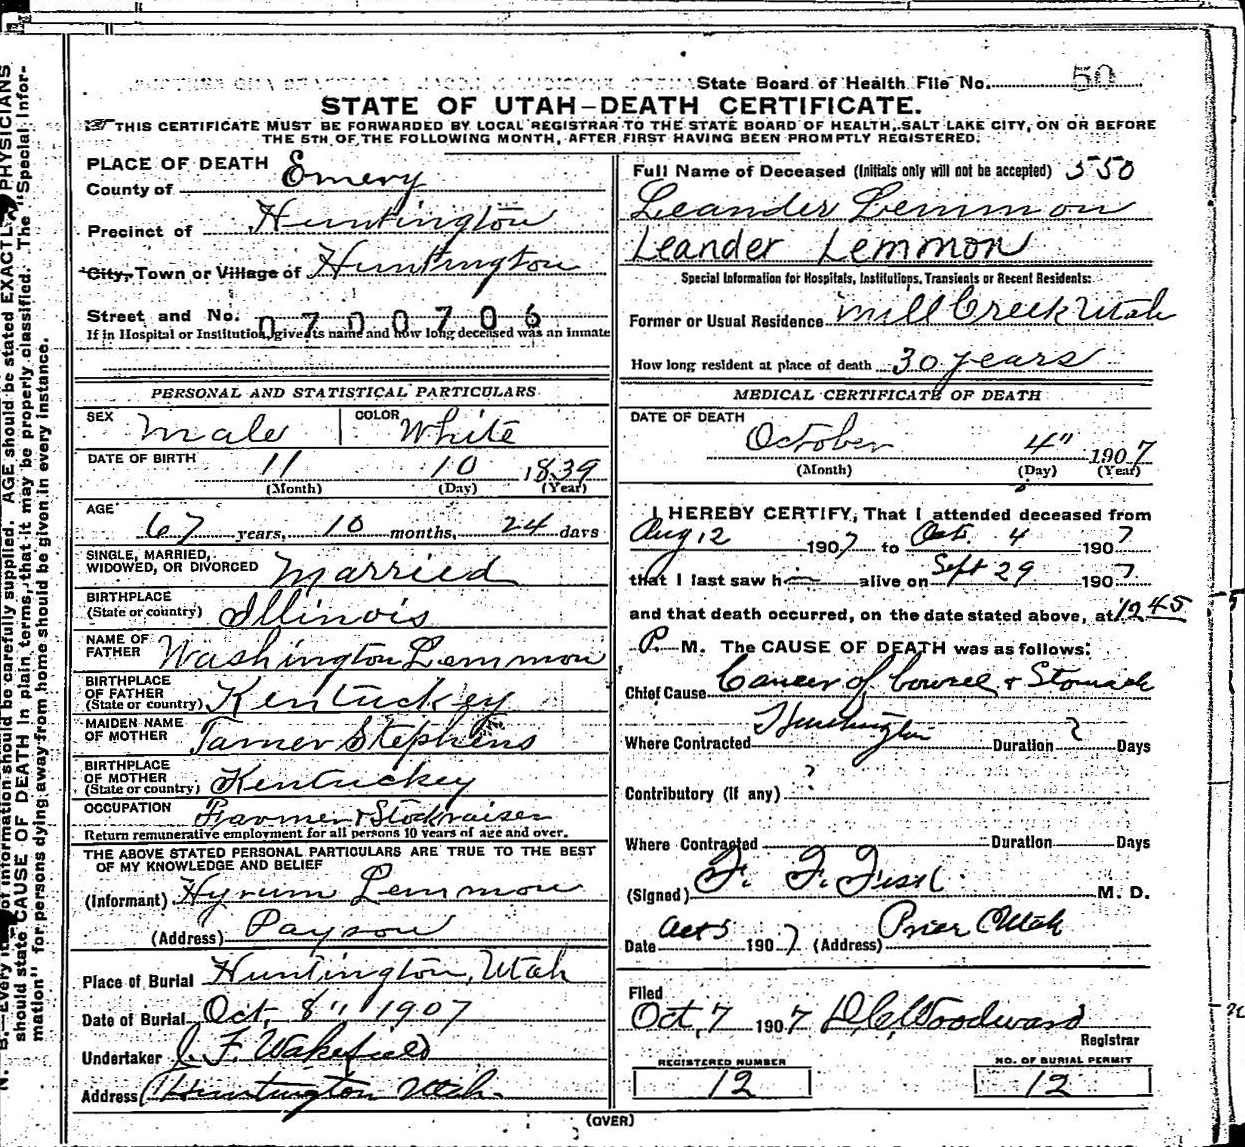 State Board of Health File No. 50
STATE OF UTAH—DEATH CERTIFICATE.
THIS CERTIFICATE MUST BE FORWARDED BY LOCAL REGISTRAR TO THE STATE BOARD OF HEALTH, SALT LAKE CITY, ON OR BEFORE
THE 5TH OF THE FOLLOWING MONTH, AFTER FIRST HAVING BEEN PROMPTLY REGISTERED.
PLACE OF DEATH
County of Emery
Precinct of Huntington
City, Town or Village of Huntington
Street and No.
0700706
If in Hospital or Institution, give its name and how long deceased was an inmate
PERSONAL AND STATISTICAL PARTICULARS
SEX Male COLOR White
DATE OF BIRTH 11 10 1839
(Month) (Day) (Year)
AGE 67 years, 10 months, 24 days
SINGLE, MARRIED,
WIDOWED, OR DIVORCED Married
BIRTHPLACE
(State or country) Illinois
NAME OF
FATHER Washington Lemmon
BIRTHPLACE
OF FATHER
(State or country) Kentuckey
MAIDEN NAME
OF MOTHER Tamer Stephens
BIRTHPLACE
OF MOTHER
(State or country) Kentuckey
OCCUPATION Farmer & Stockraiser
Return remunerative employment for all persons 10 years of age and over.
THE ABOVE STATED PERSONAL PARTICULARS ARE TRUE TO THE BEST
OF MY KNOWLEDGE AND BELIEF
(Informant) Hyrum Lemmon
(Address) Payson
Place of Burial Huntington, Utah
Date of Burial Oct, 8" 1907
Undertaker J. F. Wakefield
Address Huntington Utah.
Full Name of Deceased (Initials only will not be accepted) 550
Leander Lemmon
Leander Lemmon
Special Information for Hospitals, Institutions, Transients or Recent Residents:
Former or Usual Residence Mill Creek Utah
How long resident at place of death 30 years
MEDICAL CERTIFICATE OF DEATH
DATE OF DEATH
October 4" 1907
(Month) (Day) (Year)
I HEREBY CERTIFY, That I attended deceased from
Aug 12 1907 to Oct. 4 1907
that I last saw him alive on Sept 29 1907
and that death occurred, on the date stated above, at 12 45
P. M. The CAUSE OF DEATH was as follows:
Chief Cause Cancer of bowel & Stomach
Where Contracted Huntington Duration ? Days
Contributory (If any) ?
Where Contracted Duration Days
(Signed) F. F. Fisk. M. D.
Date Oct 5 1907 (Address) Price Utah
Filed
Oct, 7 1907 D. C. Woodward
Registrar
REGISTERED NUMBER NO. OF BURIAL PERMIT
12 12
(OVER)
N. B.—Every of information should be carefully supplied. AGE should be stated EXACTLY. PHYSICIANS
should state CAUSE OF DEATH in plain terms, that it may be properly classified. The "Special Infor-
mation" for persons dying away from home should be given in every instance.